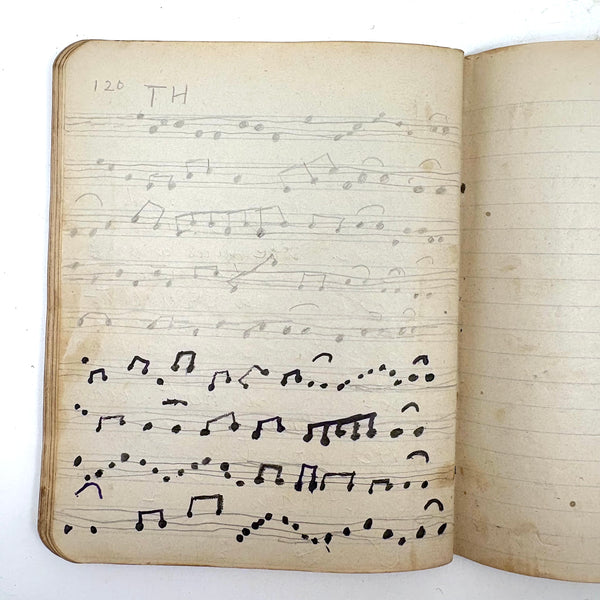 120 TH